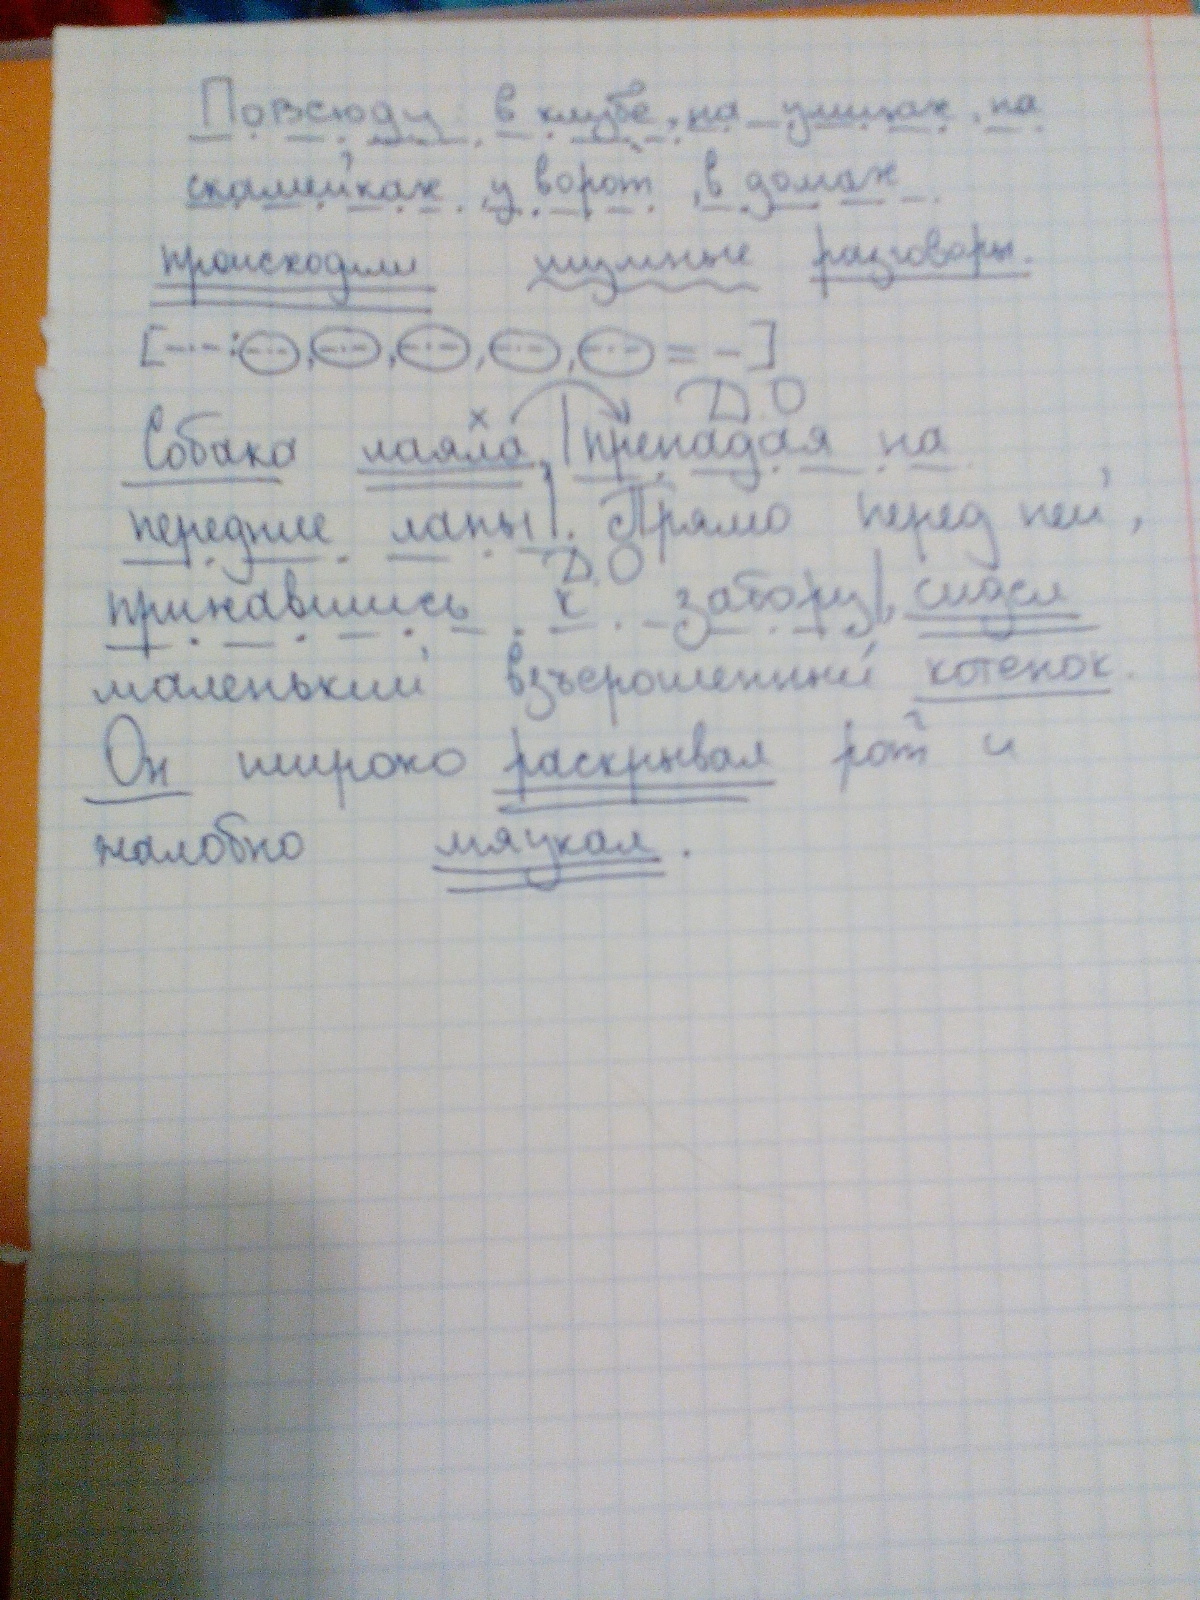 Повсюду в клубе, на улицах, на
скамейках, у ворот, в домах
происходили шумные разговоры.
[-·-: -·-, -·-, -·-, -·-, -·- = -]
Д.О
Собака лаяла, |препадая на
передние лапы|. Прямо перед ней,
Д.О
прижавшись к забору|, сидел
маленький взъерошенный котенок.
Он широко раскрывал рот и
жалобно мяукал.